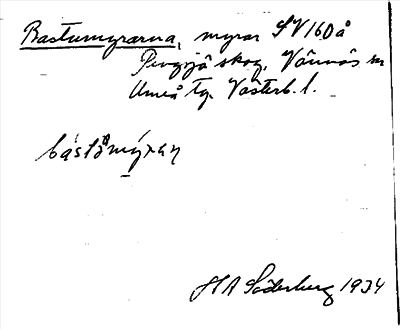 Bastumyrarna, myrar SV 160 å
Pengsjö skog, Vännäs sn
Umeå tg. Västerb. l.
bástamýran
H A Söderberg 1934